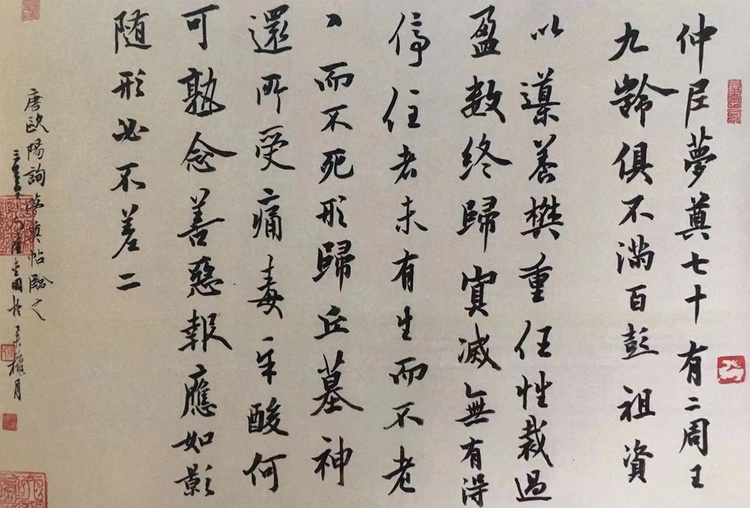 仲尼夢奠七十有二周王
九齡俱不滿百彭祖資
以導養樊重任性裁過
盈数終歸冥滅無有得
停住者未有生而不老
丶而不死形歸丘墓神
還所受痛毒辛酸何
可熟念善惡報應如影
随形必不差二
唐歐陽詢夢奠帖臨之